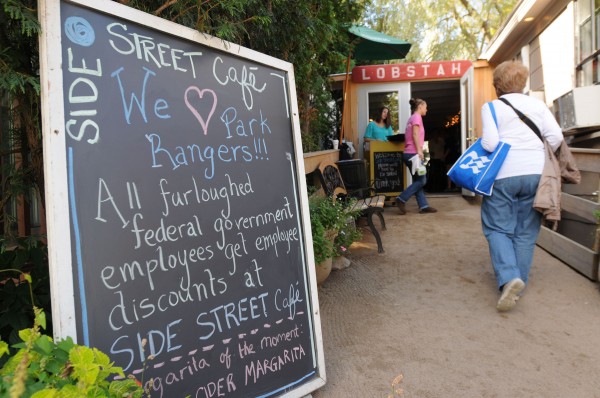 SIDE STREET Café
We ♥ Park
Rangers!!!
All furloughed
federal government
employees get employee
discounts at
SIDE STREET Café
margarita of the moment:
CIDER MARGARITA
LOBSTAH